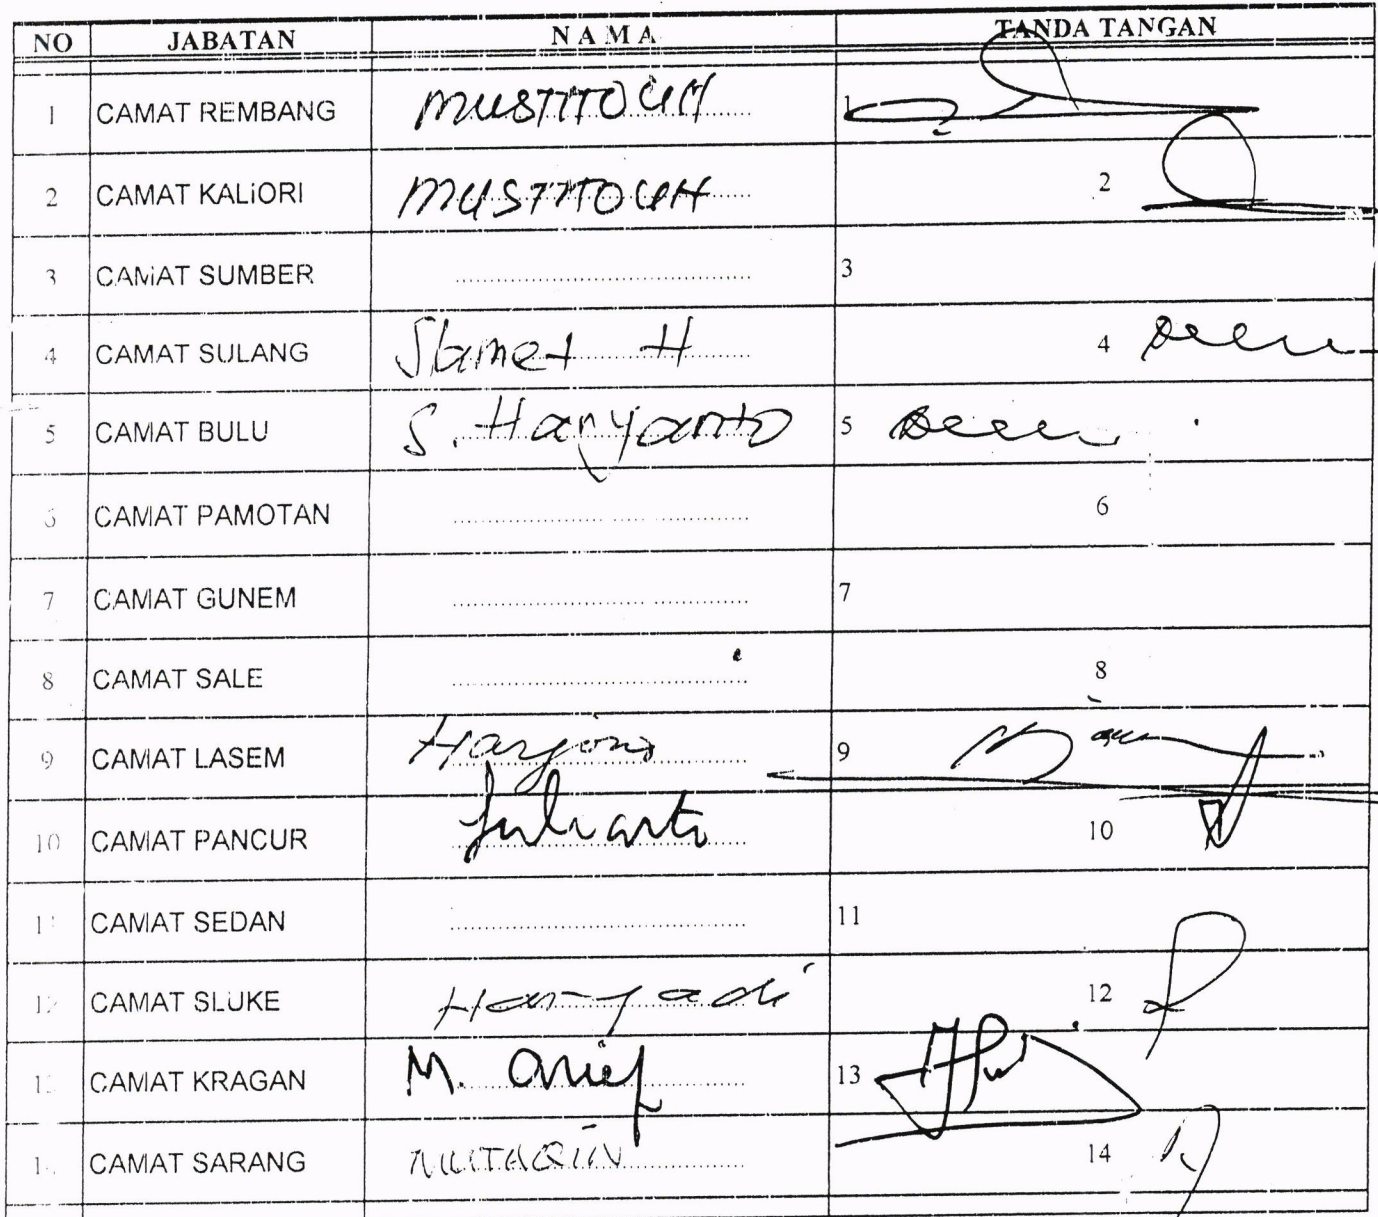 NO JABATAN N A M A TANDA TANGAN
1 CAMAT REMBANG MUSTITOCUH 1
2 CAMAT KALIORI MUSTITOCUH 2
3 CAMAT SUMBER 3
4 CAMAT SULANG Slamet H 4
5 CAMAT BULU S. Haryanto 5
6 CAMAT PAMOTAN 6
7 CAMAT GUNEM 7
8 CAMAT SALE 8
9 CAMAT LASEM Harjono 9
10 CAMAT PANCUR Julianto 10
11 CAMAT SEDAN 11
12 CAMAT SLUKE Haryadi 12
13 CAMAT KRAGAN M. Arief 13
14 CAMAT SARANG MUTAQIIN 14